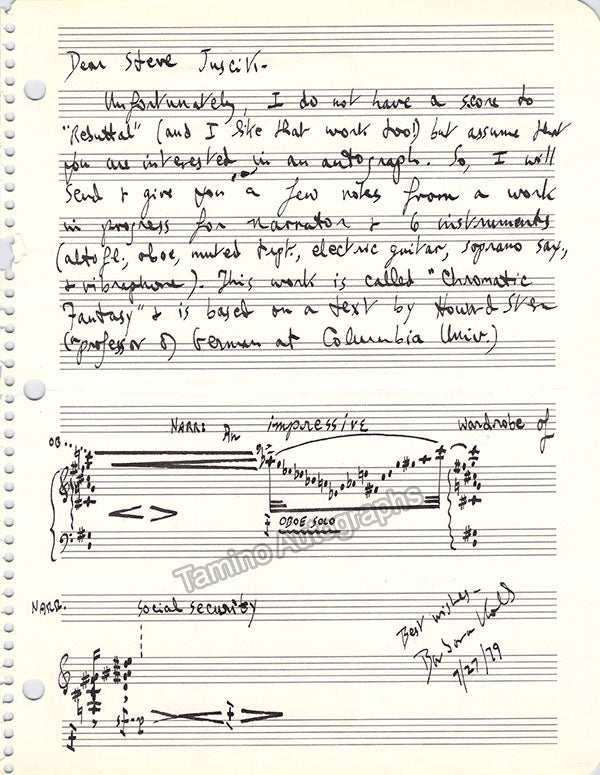 Dear Steve
Unfortunately, I do not have a score to
"Rebuttal" (and I like that work too!) but assume that
you are interested in an autograph. So, I will
send & give you a few notes from a work
in progress for narrator & 6 instruments
(alto fl., oboe, muted trpt., electric guitar, soprano sax.,
& vibraphone). This work is called "Chromatic
Fantasy" & is based on a text by Howard Stern
(professor of German at Columbia Univ.)
NARR: An impressive wardrobe of
OB.
OBOE SOLO
Tamino Autographs
NARR. social security
Best wishes-
Barbara Kolb
7/27/79